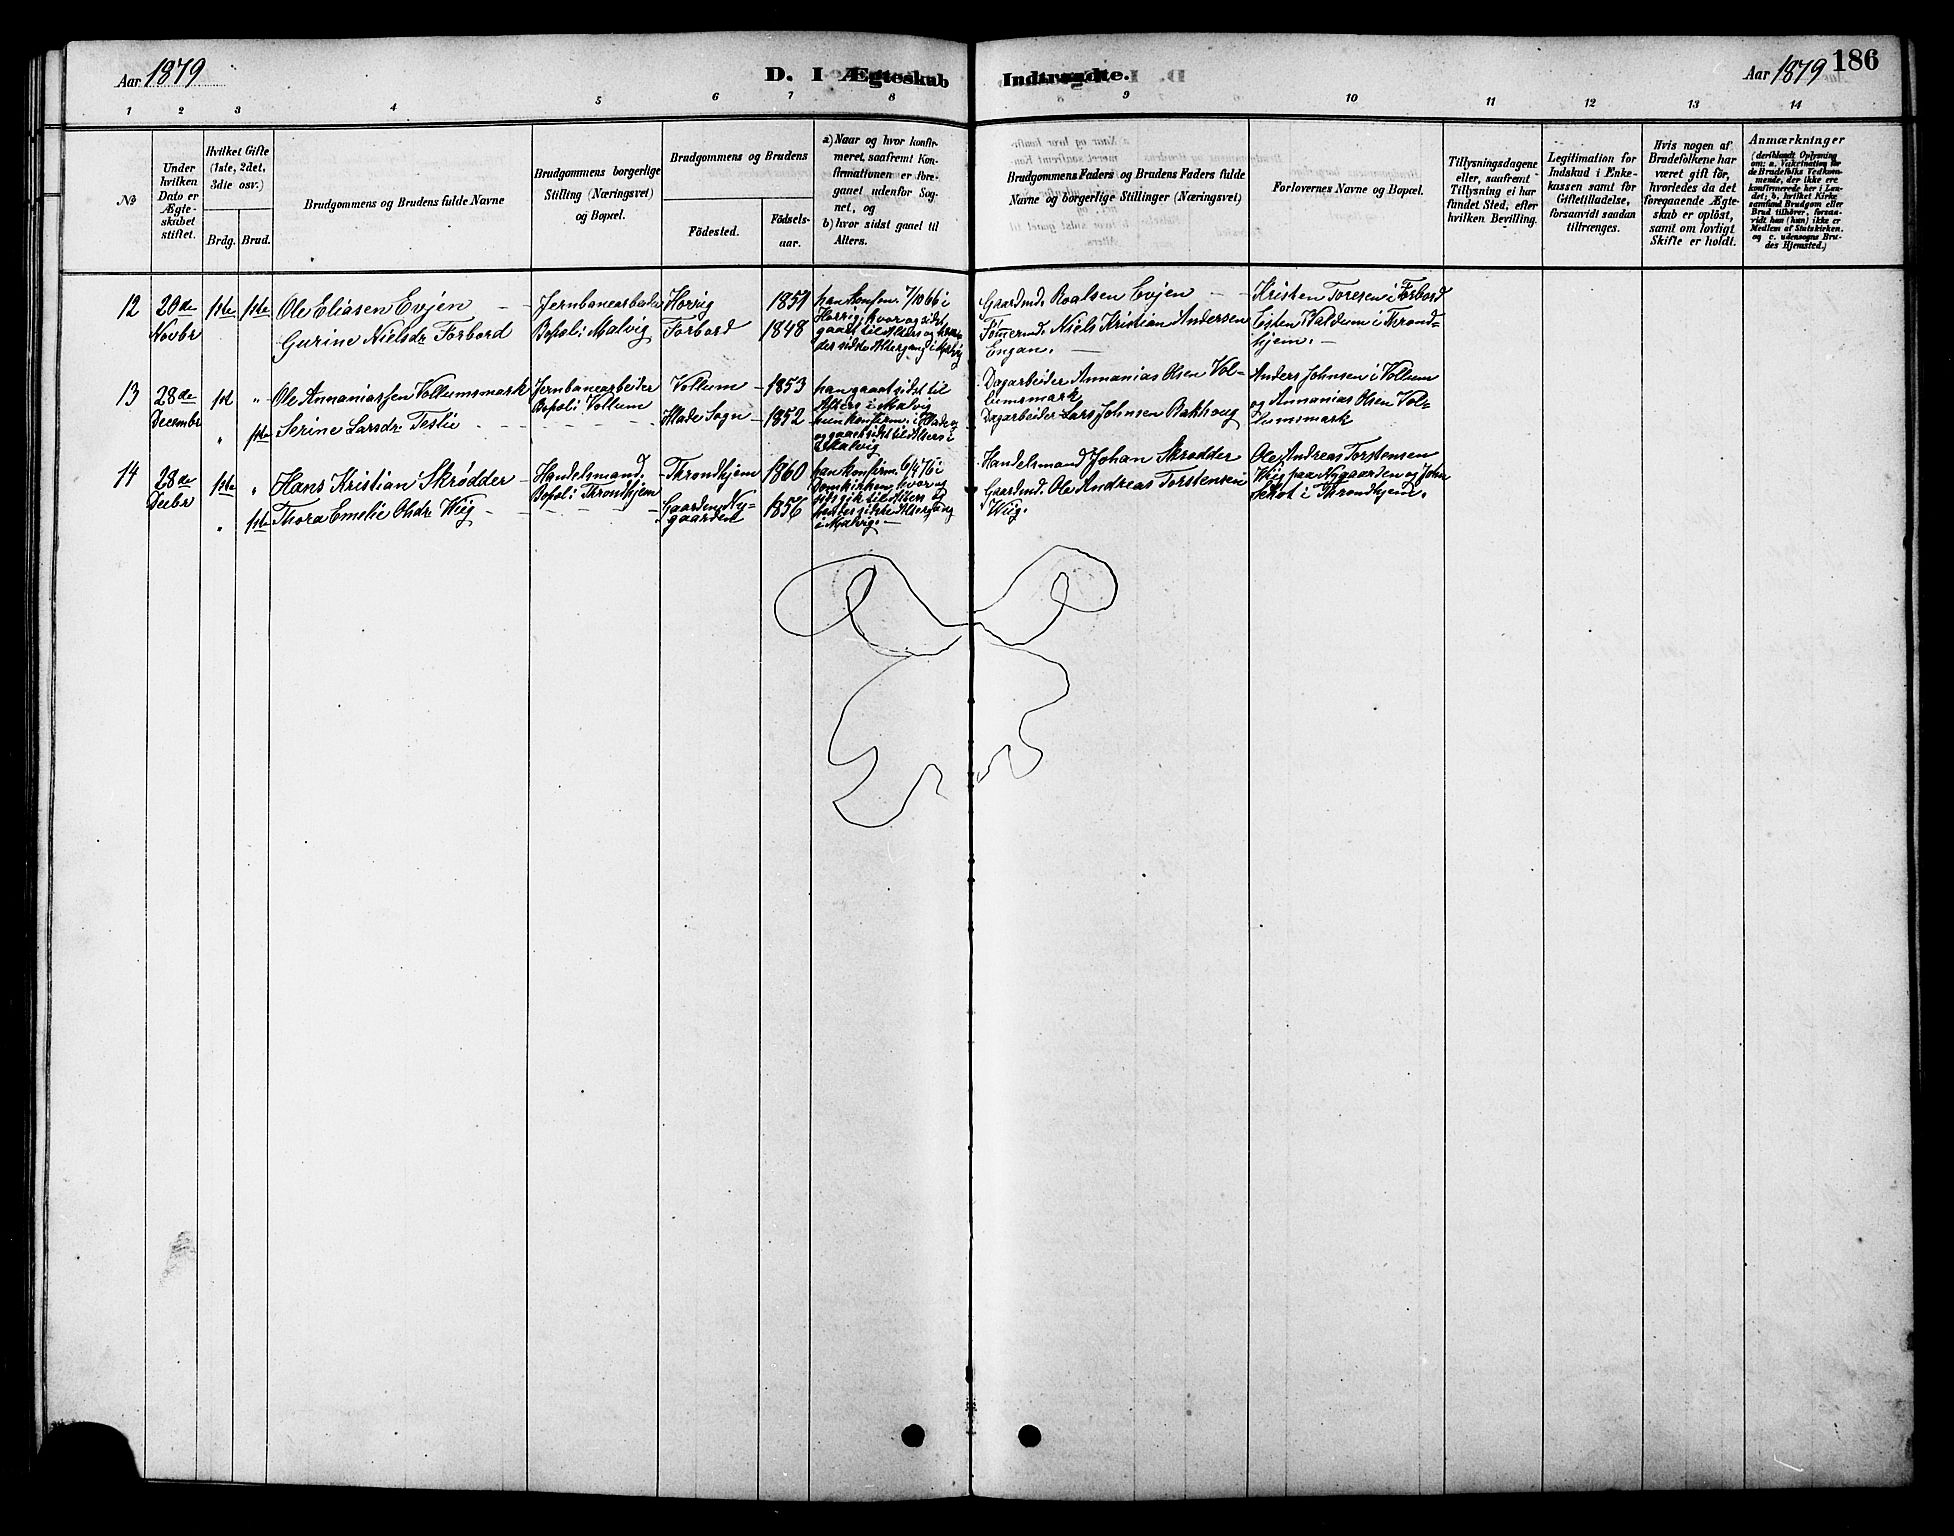 Aar 1879
D. I Ægteskab Indtraadte.
Aar 1879
186
1 2 3 4 5 6 7 8 9 10 11 12 13 14
No
Under
hvilken
Dato er
Ægte-
skabet
stiftet.
Hvilket Gifte
(1ste, 2det,
3die osv.)
Brdg.
Brud.
Brudgommens og Brudens fulde Navne
Brudgommens borgerlige
Stilling (Næringsvei)
og Bopæl.
Brudgommens og Brudens
Födested.
Födsels-
aar.
a) Naar og hvor konfir-
meret, saafremt Kon-
firmationen er fore-
gaaet udenfor Sog-
net, og
b) hvor sidst gaaet til
Alters.
Brudgommens Faders og Brudens Faders fulde
Navne og borgerlige Stillinger (Næringsvei)
Forlovernes Navne og Bopæl.
Tillysningsdagene
eller, saafremt
Tillysning ei har
fundet Sted, efter
hvilken Bevilling.
Legitimation for
Indskud i Enke-
kassen samt for
Giftetilladelse,
forsaavidt saadan
tiltrænges.
Hvis nogen af
Brudefolkene har
været gift för,
hvorledes da det
foregaaende Ægte-
skab er oplöst,
samt om lovligt
Skifte er holdt.
Anmærkninger
(deriblandt Oplysning
om: a. Vakcination för
de Brudefolks Vedkom-
mende, der ikke ere
konfirmerede her i Lan-
det; b. hvilket Kirke-
samfund Brudgom eller
Brud tilhöver, forsaa-
vidt han (hun) ikke er
Medlem af Statskirken.
og c. udensogns Bru-
des Hjemsted.)
12
20de
Novbr
1ste
1ste
Ole Eliasen Evjen
Gurine Nielsdr Forbord
Jernbanearbeider
Bopæl: Malvig
Horrig
Forbord
1851
1848
han konfirm. 7/10 66 i
Horrig, hvor og sidst
gaaet til Alters og
des sidste Altergang i Malvig
Gaardmd. Roalsen Evjen
Tömermd. Niels Kristian Andersen
Engan.
Kristen Toresen i Forbord
Esten Waldum i Thrond-
hjem.
13
28de
Decembr
1st
"
"
1ste
Ole Annaniassen Vollumsmark
Serine Larsdr Teslie
Jernbanearbeider
Bopæl: Vollum
Vollum
Hlade Sogn
1853
1852
han gaaet sidst til
Alters i Malvig
hun konfirm. i Hlade
og gaaet sidst til Alters i
Malvig
Dagarbeider Annanias Olsen Vol-
lumsmark
Dagarbeider Lars Johnsen Bakhoug
Anders Johnsen i Vollum
og Annanias Olsen Vol-
lumsmark
14
28de
Decbr
1ste
"
"
1ste
Hans Kristian Skrødder
Thora Emelie Olsdr Wiig
Handelsmand
Bopæl: Throndhjem
Throndhjem
Gaarden Ny-
gaarden
1860
1856
han konfirm. 6/4 76 i
Domkirken, hvor og
sidst gik til Alters og
hendes sidste Altergang
i Malvig.
Handelsmand Johan Skrødder
Gaardmd. Ole Andreas Torstensen
Wiig.
Ole Andreas Torstensen
Wiig paa Nygaarden og John
i Throndhjem.